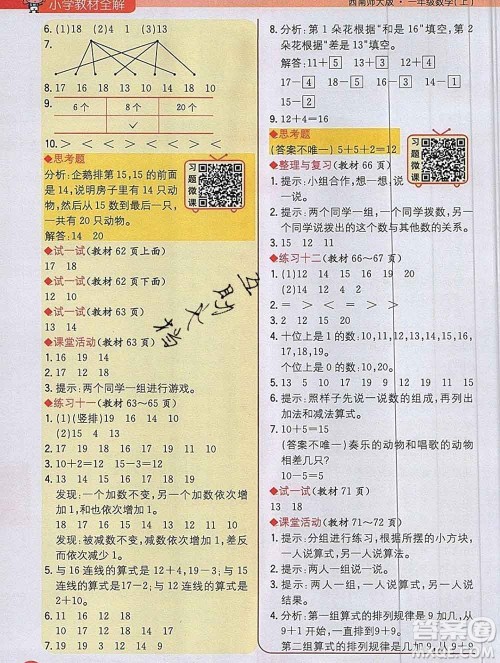 小学教材全解
6. (1)18 (2)4 (3)13
7.
14 15 13 16 17
8. 15 17 14 18 18 10
9. 6个 8个 20个
10. > < < = < >
◆思考题
分析:企鹅排第15,15的前面
是14,说明房子里有14只动
物,然后从5数到最后一只,
一共有20只动物。
解答:14 20
◆试一试(教材62页上面)
17 18
◆试一试(教材62页下面)
12 10
◆试一试(教材63页)
13 14
◆课堂活动(教材63页)
1. 16 19 14
2. 15 10
3. 提示:两个同学一组进行游戏。
◆练习十一(教材63~65页)
1. (1)(竖排) 19 14 16
(2)(竖排) 14 15 18
2. 17 13 18 19 12 19
3. 10+2=12 15-5=10
4. 16 17 18 19 11 12 13 14
发现:一个加数不变,另一个加数依次增
加1,和也依次增加1。
17 16 15 14 14 13 12 11
发现:被减数不变,减数依次增加1,差依
次减少1。
5. 与16连线的算式是12+4,19-3;与15
连线的算式是17-2;与11连线的算式是
2+9。
6. 11 13 11 18 10 10
7. 19 12 16 11 15 12 15 11
西南师大版·一年级数学(上)
8. 分析:第1朵花根据“和是16”填空。第2
朵花根据“差是13”填空。
解答:11+5 13+3 12+4
17-4 18-5
15-2 16-3
9. 12+4=16
◆思考题
(答案不唯一) 5+5+2=12
◆整理与复习(教材66页)
1. 提示:小组合作,想一想,说一说。
2. 提示:两个同学一组,一个同学拨数,另一
个同学说这个数与其他数的关系。
3. 15 12 11
◆练习十二(教材66~67页)
1. (1)12 14 15 17 18 20
(2)18 17 16 14 13 12
2. = > < > < >
4. 十位上是1的数:10,18,11,17,13。
个位上是0的数:10,20。
5. 13 10 15 15 19 17 18 14
6. 提示:照样子先说一说数的组成,再列出
加法和减法算式。
7. 10+5=15
(答案不唯一) 奏乐的动物和唱歌的动物
相差多少只?
10-5=5
◆试一试(教材71页)
13 18
◆课堂活动(教材71~72页)
1. 提示:分组进行练习,利用相同的小方块,
一人说算式,另一人说得数。
2. 提示:一人说算式,另一人说得数。
3. 11 12 14
4. 分析:第一组算式的排列规律是9加几,从
9+1到9+9
第二组算式的排列规律是几加9,从
习题微课
习题微课